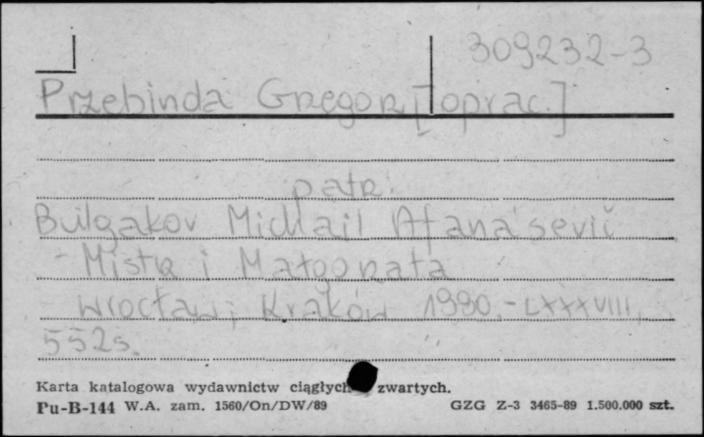 309232-3
Przebinda Gregor [oprac.]
patrz:
Bulgakov Michail Afanas'evič
- Mistrz i Małgorzata
Wrocław; Kraków 1990.- LXXXVIII,
552s.
Karta katalogowa wydawnictw ciągłych zwartych.
Pu-B-144 W.A. zam. 1560/On/DW/89 GZG Z-3 3465-89 1.500.000 szt.